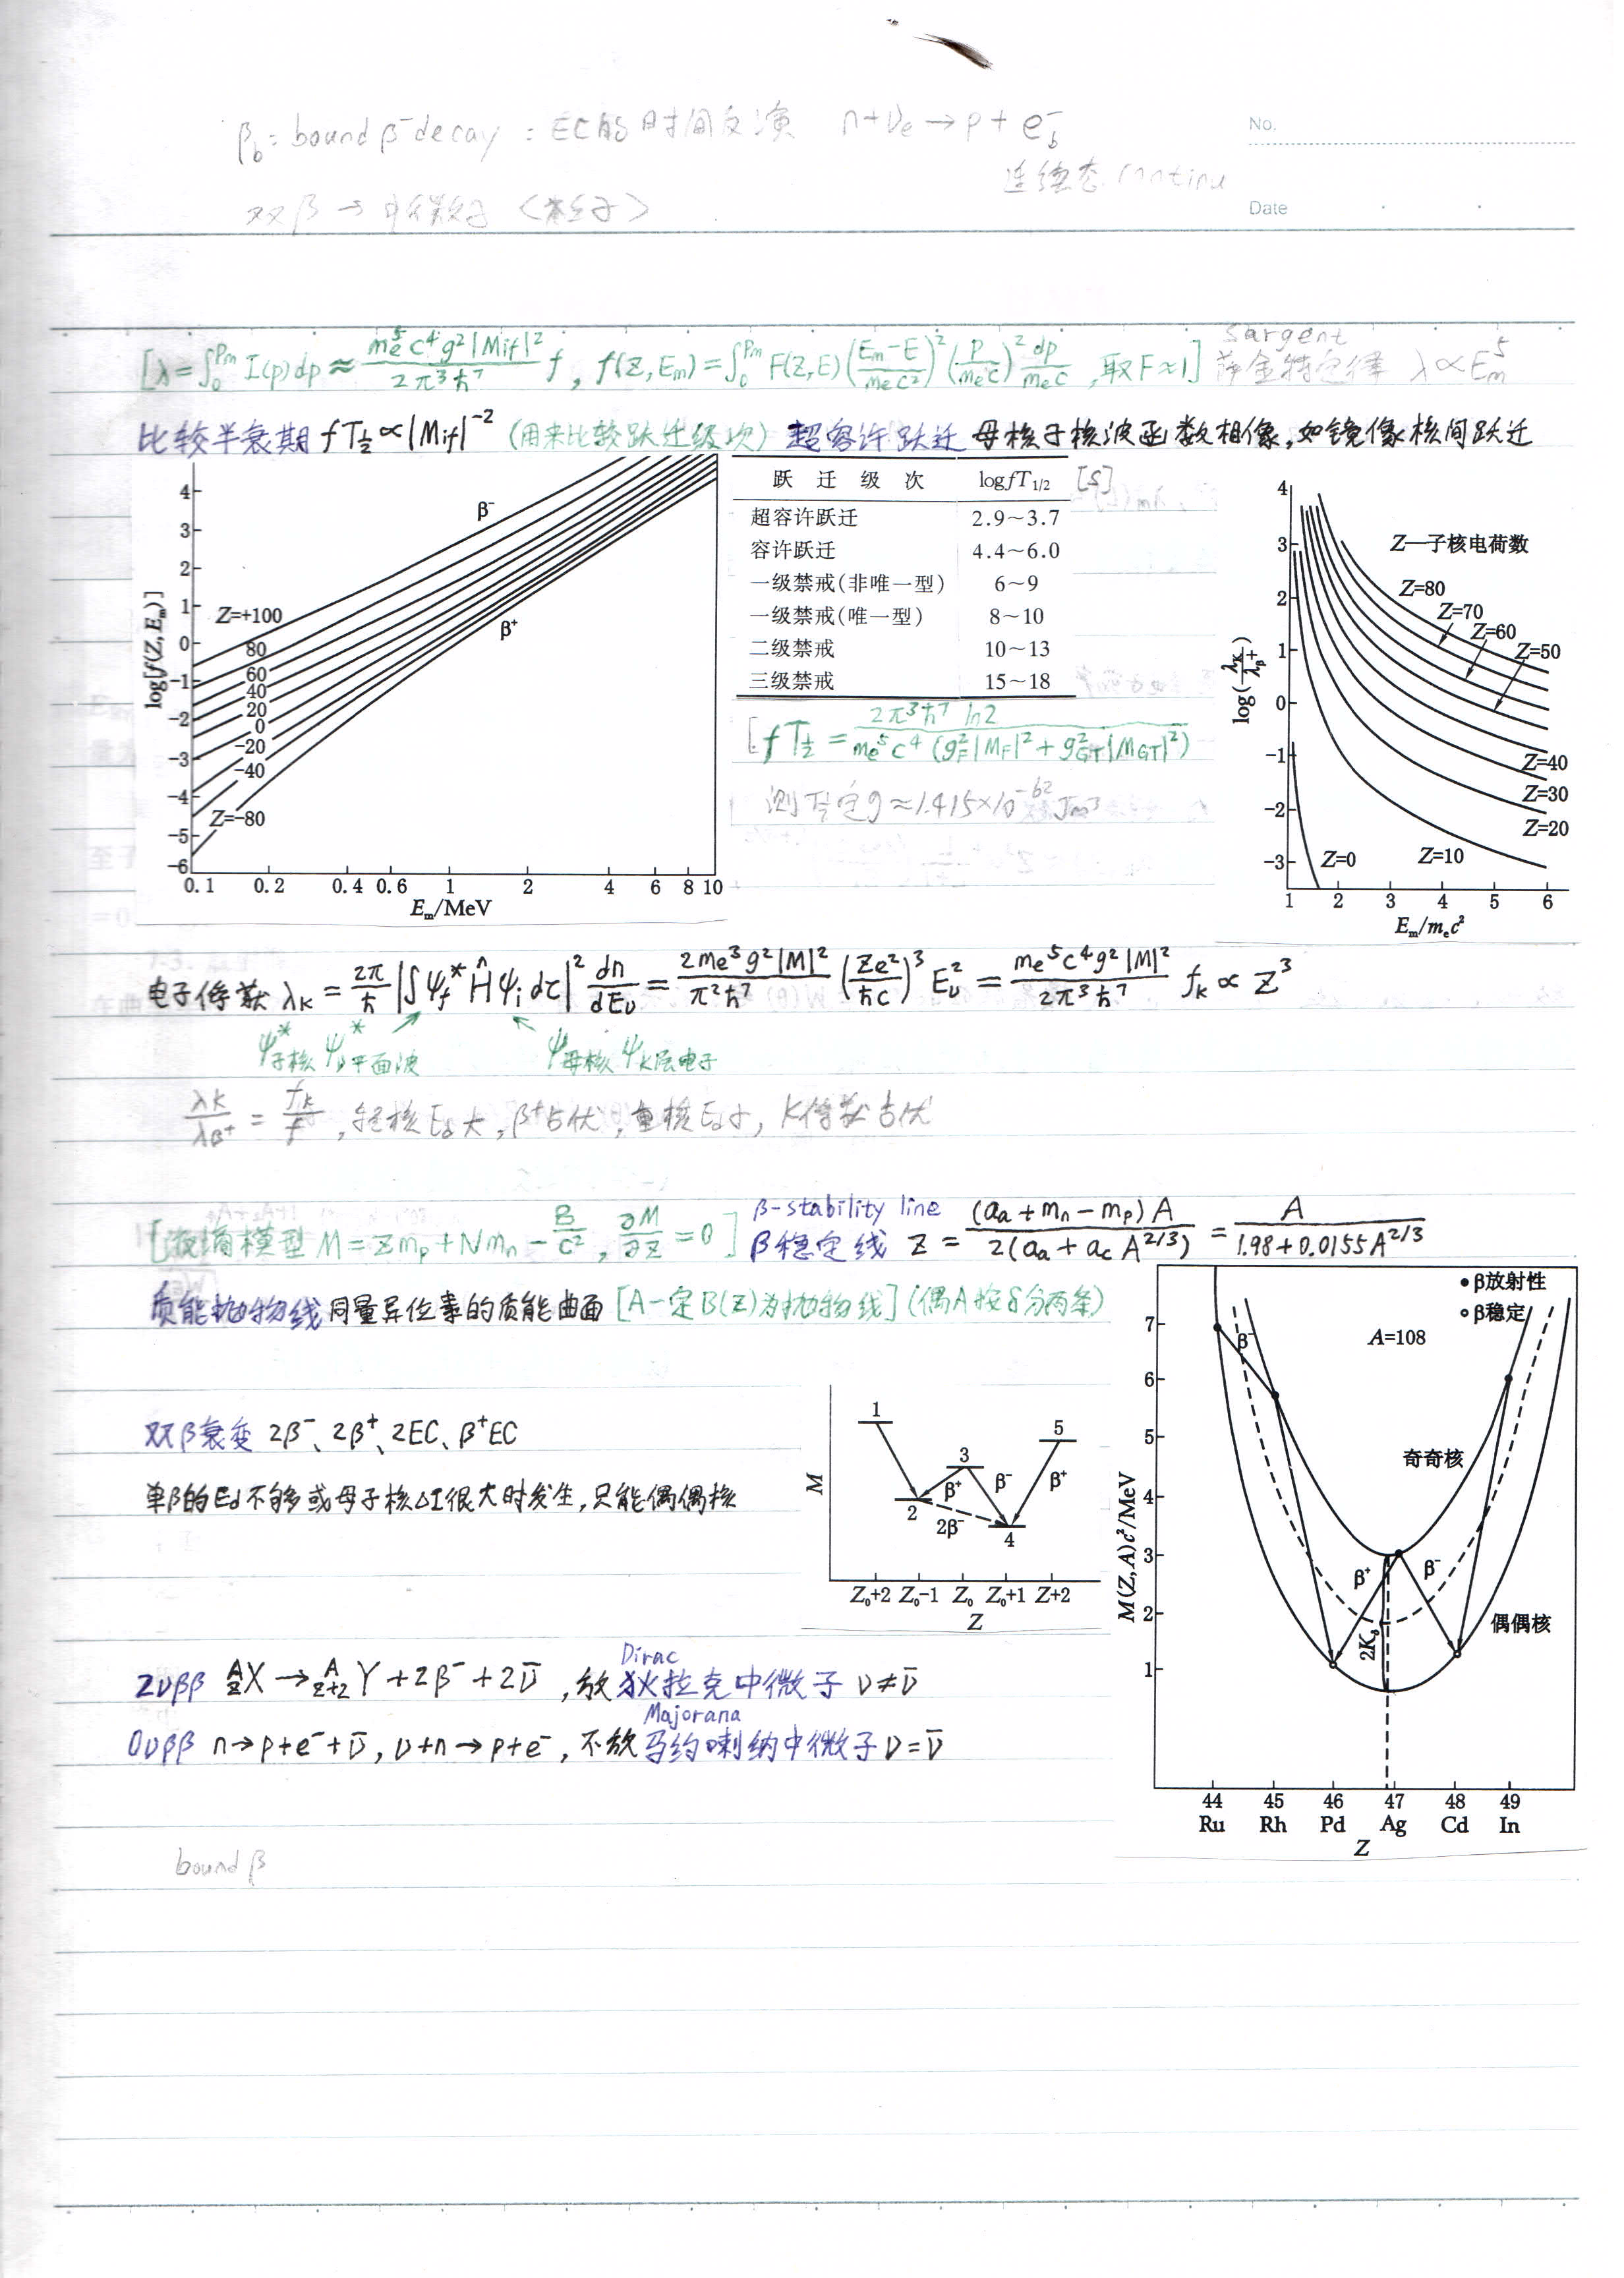 βb⁻: bound β⁻ decay : EC的时间反演 n+νe→p+e⁻b
No.
连续态 continu
双β → 中微子
Date
[λ=∫₀^Pm I(p)dp≈ me⁵c⁴g²|Mif|²/2π³ħ⁷ f, f(Z,Em)=∫₀^Pm F(Z,E)(Em−E/mec²)²(p/mec)² dp/mec ,取F≈1] Sargent 萨金特定律 λ∝Em⁵
比较半衰期 fT½∝|Mif|⁻² (用来比较跃迁级次) 超容许跃迁 母核子核波函数相像,如镜像核间跃迁
log[f(Z, Em)]
4
3
2
1
0
−1
−2
−3
−4
−5
−6
β⁻
β⁺
Z=+100
80
60
40
20
0
−20
−40
Z=−80
0.1 0.2 0.4 0.6 1 2 4 6 8 10
Em/MeV
跃迁级次 logfT1/2 [s]
超容许跃迁 2.9~3.7
容许跃迁 4.4~6.0
一级禁戒(非唯一型) 6~9
一级禁戒(唯一型) 8~10
二级禁戒 10~13
三级禁戒 15~18
[fT½ = 2π³ħ⁷ ln2/me⁵c⁴(gF²|MF|²+gGT²|MGT|²)
测定g≈1.415×10⁻⁶² Jm³
log(λK/λβ+)
4
3
2
1
0
−1
−2
−3
Z—子核电荷数
Z=80
Z=70
Z=60
Z=50
Z=40
Z=30
Z=20
Z=10
Z=0
1 2 3 4 5 6
Em/mec²
电子俘获 λK = 2π/ħ |∫ψf* Ĥ ψi dτ|² dn/dEν = 2me³g²|M|²/π²ħ⁷ (Ze²/ħc)³ Eν² = me⁵c⁴g²|M|²/2π³ħ⁷ fK ∝ Z³
ψ*子核 ψ*ν平面波 ψ母核 ψK层电子
λK/λβ+ = fK/f , 轻核Ed大, β⁺占优, 重核Ed小, K俘获占优
[液滴模型 M=Zmp+Nmn−B/c², ∂M/∂Z=0] β-stability line β稳定线 Z= (aa+mn−mp)A/2(aa+acA^2/3) = A/1.98+0.0155A^2/3
质能抛物线 同量异位素的质能曲面 [A一定B(Z)为抛物线] (偶A按δ分两条)
双β衰变 2β⁻、2β⁺、2EC、β⁺EC
单β的Ed不够或母子核ΔI很大时发生,只能偶偶核
M
1
2
3
4
5
β⁺
β⁻
β⁺
2β⁻
Z₀+2 Z₀−1 Z₀ Z₀+1 Z+2
Z
M(Z,A)c²/MeV
7
6
5
4
3
2
1
•β放射性
∘β稳定
A=108
β⁻
奇奇核
β⁺
β⁻
偶偶核
44 45 46 47 48 49
Ru Rh Pd Ag Cd In
Z
2νββ ᴬzX→ᴬz+2Y+2β⁻+2ν̄ ,放 Dirac 狄拉克中微子 ν≠ν̄
0νββ n→p+e⁻+ν̄, ν+n→p+e⁻, 不放 Majorana 马约喇纳中微子 ν=ν̄
bound β